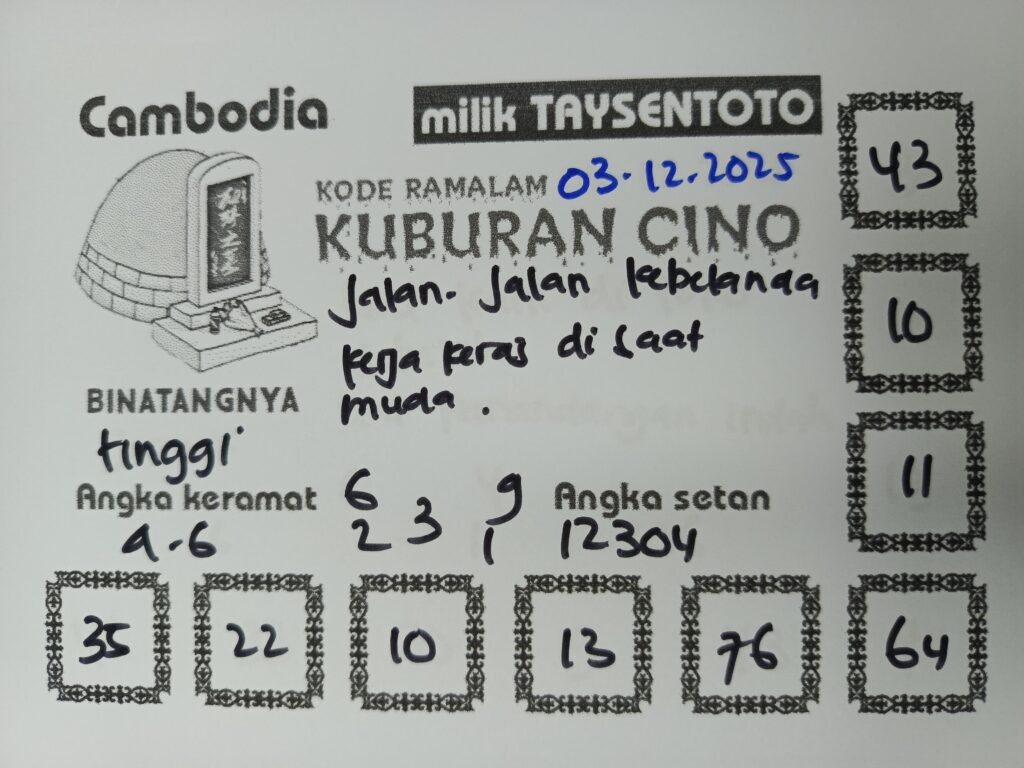 Cambodia
milik TAYSENTOTO
KODE RAMALAM 03.12.2025
KUBURAN CINO
Jalan. Jalan kebelanda
kerja keras di saat
muda.
BINATANGNYA
tinggi
Angka keramat
9.6
6 3 9
2 1
Angka setan
12304
43
10
11
35 22 10 13 76 64